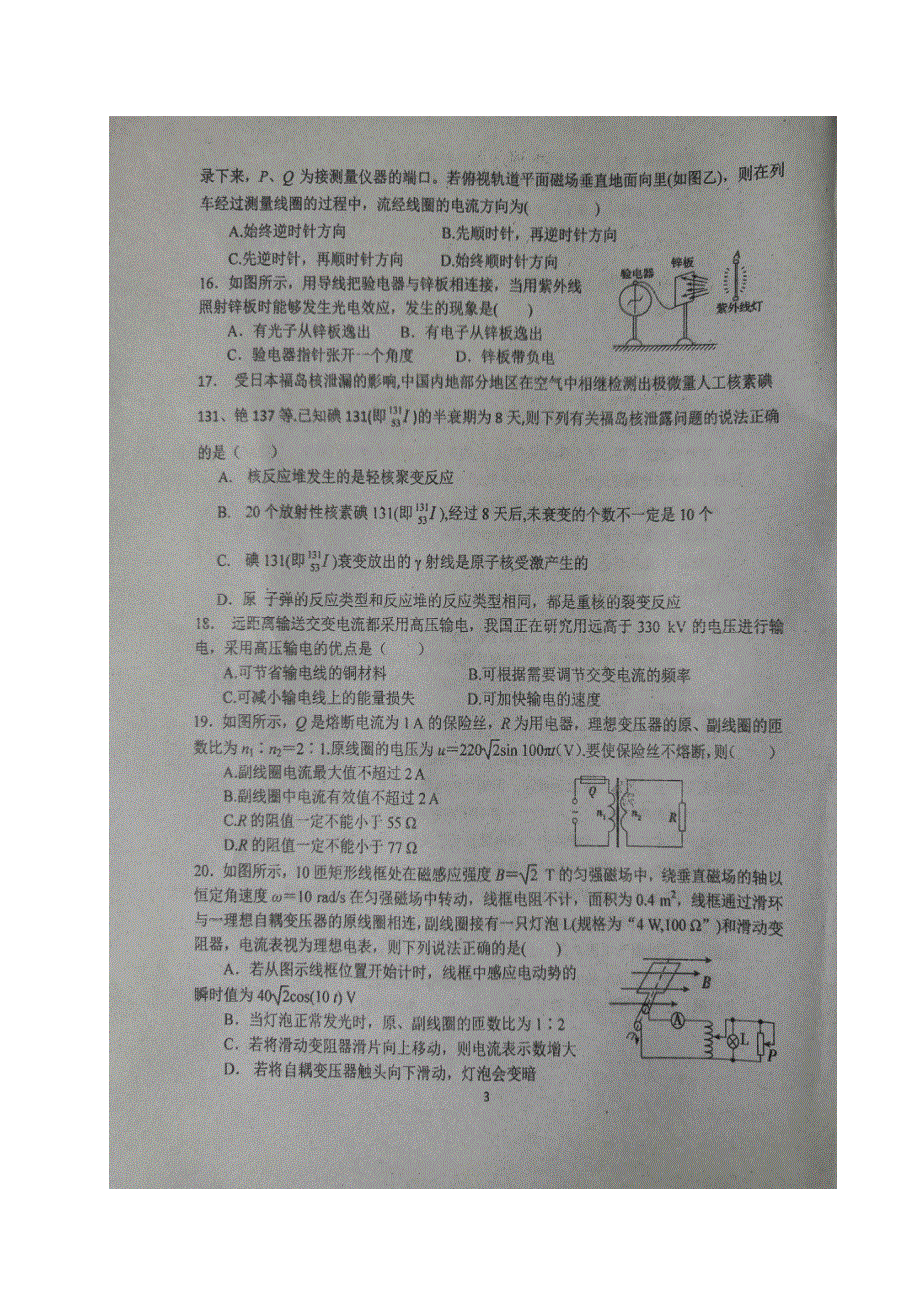 录下来，P、Q 为接测量仪器的端口。若俯视轨道平面磁场垂直地面向里(如图乙)，则在列
车经过测量线圈的过程中，流经线圈的电流方向为(　　)
A.始终逆时针方向　B.先顺时针，再逆时针方向
C.先逆时针，再顺时针方向　D.始终顺时针方向
16．如图所示，用导线把验电器与锌板相连接，当用紫外线
照射锌板时能够发生光电效应，发生的现象是(　　)
A．有光子从锌板逸出　B．有电子从锌板逸出
C．验电器指针张开一个角度　D．锌板带负电
验电器
锌板
紫外线灯
17．受日本福岛核泄漏的影响,中国内地部分地区在空气中相继检测出极微量人工核素碘
131、铯 137 等.已知碘 131(即 ¹³¹₅₃I )的半衰期为 8 天,则下列有关福岛核泄露问题的说法正确
的是（　　）
A．核反应堆发生的是轻核聚变反应
B．20 个放射性核素碘 131(即 ¹³¹₅₃I ),经过 8 天后,未衰变的个数不一定是 10 个
C．碘 131(即 ¹³¹₅₃I )衰变放出的 γ 射线是原子核受激产生的
D．原 子弹的反应类型和反应堆的反应类型相同，都是重核的裂变反应
18．远距离输送交变电流都采用高压输电，我国正在研究用远高于 330 kV 的电压进行输
电，采用高压输电的优点是（　　）
A.可节省输电线的铜材料　B.可根据需要调节交变电流的频率
C.可减小输电线上的能量损失　D.可加快输电的速度
19．如图所示，Q 是熔断电流为 1 A 的保险丝，R 为用电器，理想变压器的原、副线圈的匝
数比为 n₁∶n₂＝2∶1.原线圈的电压为 u＝220√2sin 100πt(V).要使保险丝不熔断,则(　　)
A.副线圈电流最大值不超过 2 A
B.副线圈中电流有效值不超过 2 A
C.R 的阻值一定不能小于 55 Ω
D.R 的阻值一定不能小于 77 Ω
Q
n₁
n₂
R
20．如图所示，10 匝矩形线框处在磁感应强度 B＝√2 T 的匀强磁场中，绕垂直磁场的轴以
恒定角速度 ω＝10 rad/s 在匀强磁场中转动，线框电阻不计，面积为 0.4 m²，线框通过滑环
与一理想自耦变压器的原线圈相连,副线圈接有一只灯泡 L(规格为“4 W,100 Ω”)和滑动变
阻器，电流表视为理想电表，则下列说法正确的是(　　)
A．若从图示线框位置开始计时，线框中感应电动势的
瞬时值为 40√2cos(10 t) V
B．当灯泡正常发光时，原、副线圈的匝数比为 1∶2
C．若将滑动变阻器滑片向上移动，则电流表示数增大
D．若将自耦变压器触头向下滑动，灯泡会变暗
B
A
L
P
3